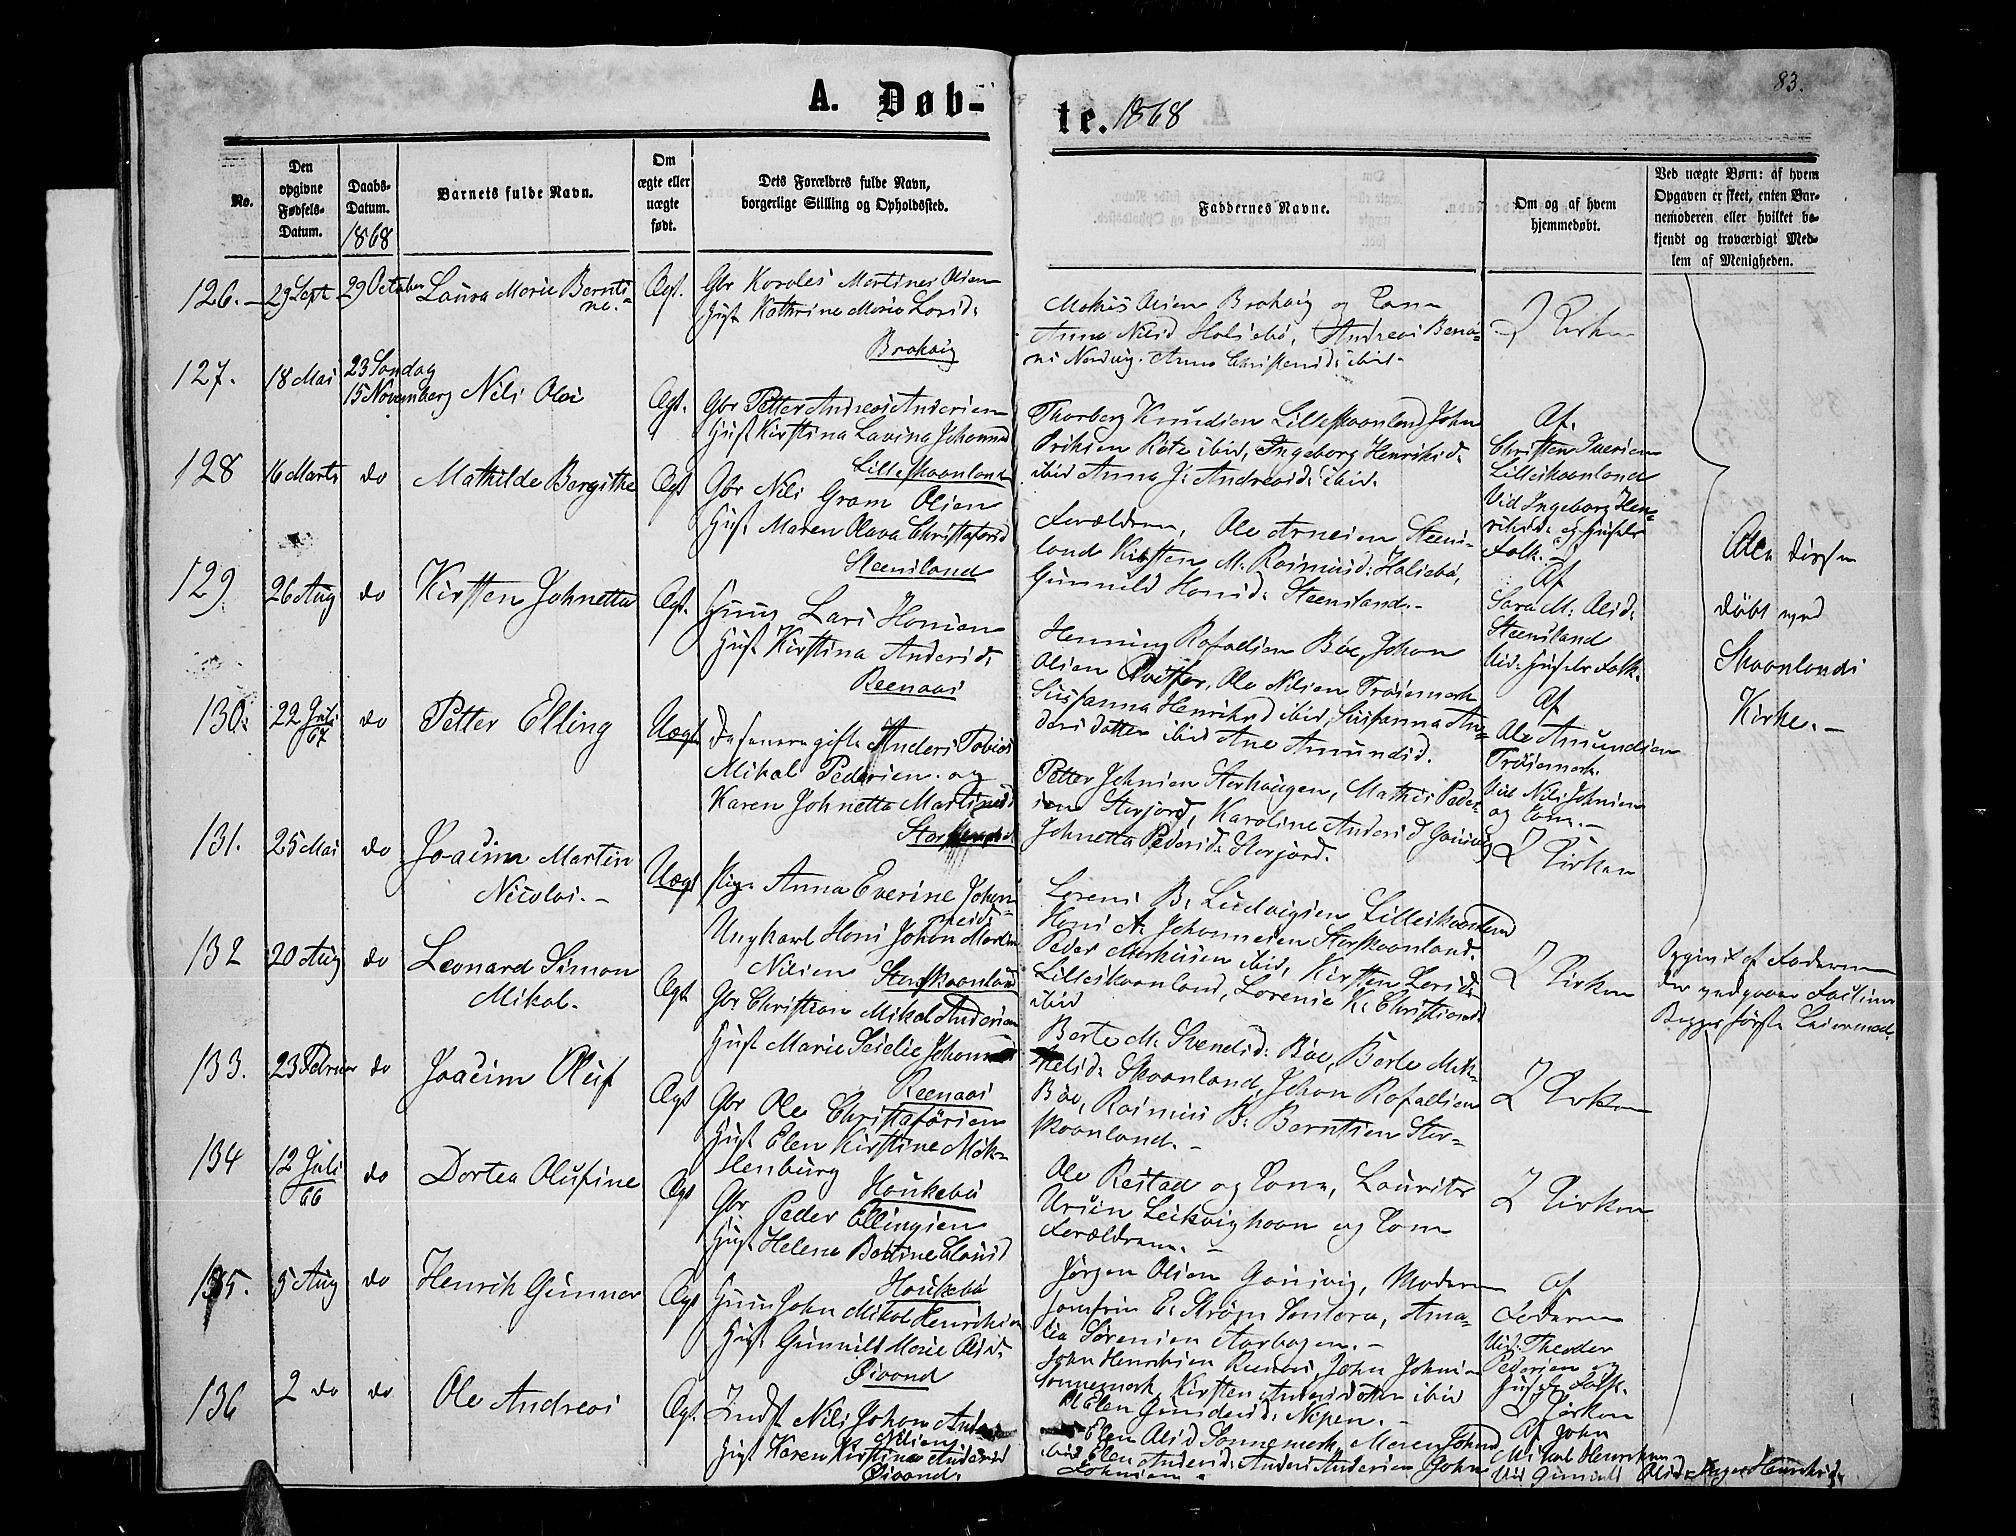 A. Døb-
te. 1868
83.
No.
Den opgivne Fødsels-Datum.
Daabs-Datum. 1868
Barnets fulde Navn.
Om ægte eller uægte født.
Dets Forældres fulde Navn, borgerlige Stilling og Opholdssted.
Faddernes Navne.
Om og af hvem hjemmedøbt.
Ved uægte Børn: af hvem
Opgaven er skeet, enten Bar-
nemoderen eller hvilket be-
kjendt og troværdigt Med-
lem af Menigheden.
126. 29 Sept 29 October Laura Marie Bernti-
ne. Ægt.
Gbr Karoles Martines Olsen
Hust Kathrine Marie Larsd:
Brokvig
Mathis Olsen Brokvig og Kone
Anna Nilsd Halsebø, Andreas Bena-
ni Nordvig. Anne Christensd: ibid-
I Kirken
127. 18 Mai 23 Søndag
15 Novemberg Nils Olai Ægt.
Gbr Petter Andreas Andersen
Hust Kirstina Lavina Johannesd
Lilleskaanland
Thorberg Knudsen Lilleskaanland John
Eriksen Rete ibid, Ingeborg Henriksd:
ibid Anna J: Andreasd: ibid.
Af
Christen Iversen
Lilleskaanland
Vid Ingeborg Hen-
riksd: og Husets
Folk.-
128 16 Marts do Mathilde Bergithe Ægt
Gbr Nils Gram Olsen
Hust. Maren Olava Christafersd
Steensland
Forældrene, Ole Arnesen Steens-
land Kirsten M. Rasmusd: Halsebø,
Gunnild Hansd: Steensland.-
Af
Sara M: Olsd:
Steensland
Vid: Husets Folk.
129 26 Aug do Kirsten Johnetta Ægt.
Huus Lars Hansen
Hust Kirstina Andersd:
Reenaas
Henning Rafaelsen Bøe, Johan
Olsen, Ole Nilsen Trøsemark
Susanna Henriksd ibid, Susanna An-
dersdatter ibid Ane Amundsd.
Af
Ole Amundsen
Trøsemark
Vid Nils Johnsen
og Kone.-
Alle disse
døbt ved
Skaanlands
Kirke.-
130. 22 Juli
67 do Petter Elling Uægt
Anders Tobias
Mikal Pedersen og
Karen Johnetta Martinusd:
Petter Johnsen Storhaugen, Mathis Peder-
sen Storjord, Karoline Andersd Gausvig
Johnetta Pedersd: Storjord.
I Kirken
131. 25 Mai do Joacim Martin
Nicolai.- Uægt
Pige Anna Everine Johan-
nesd:
Ungkarl Hans Johan Martin
Nilsen Storskaanland
Lorens B: Ludvigsen Lilleskaanland
Hans A: Johannesen Storskaanland.
Peder Markusen ibid, Kirsten Larsd:
Lilleskaanland, Lorense K: Christiansd
ibid
I Kirken
Opgivet af Faderen
der vedgaaer Factum
Begges første Leiermaal.
132 20 Aug do Leonard Simon
Mikal. Ægt
Gbr Christian Mikal Andersen
Hust Marie Seselie Johannesd
Reenaas
Berte M: Svendsd: Bøe, Berte Mik-
kelsd: Skaanland, Johan Rafaelsen
Bøe, Rasmus B: Berntsen Stor-
skaanland.-
I Kirken
133. 23 Februar do Joacim Oluf Ægt
Gbr Ole Christafersen
Hust. Elen Kirstine Mek-
lenburg
Haukebø
Ole Restad og Kone, Laurits
Ursin Leikvighavn og Kone
Forældrene.-
I Kirken
134 12 Juli
66 do Dortea Olufine Ægt
Gbr Peder Ellingsen
Hust Helena Bertine Clausd
Haukebø
Jørgen Olsen Gausvig, Moderen
Jomfru E: Strøm Sandtorv, Ama-
lia Sørensen Aarbogen.-
Af
Faderen
Vid: Theodor
Pedersen og
Husets Folk.
135. 5 Aug do Henrik Gunnar Ægt
Huus John Mikal Henriksen
Hust Gunnild Marie Olsd:
Øivand
John Henriksen Reenaas, John Johns-
Sannemark Kirsten Andersdatter ibid
Elen Gundersd: Nipen.-
I Kirken
136 2 do do Ole Andreas Ægt.
Indst Nils Johan Anders
Nilsen
Hust Karen Kirstine Andersd
Øivand.
Elen Olsd Sannemark, Maren Johnsd
ibid Elen Andersd: Anders Andersen John
Johnsen.
Af John
Mikal Henriksen
Vid Gunnild Olsd: Inger Henriksd: